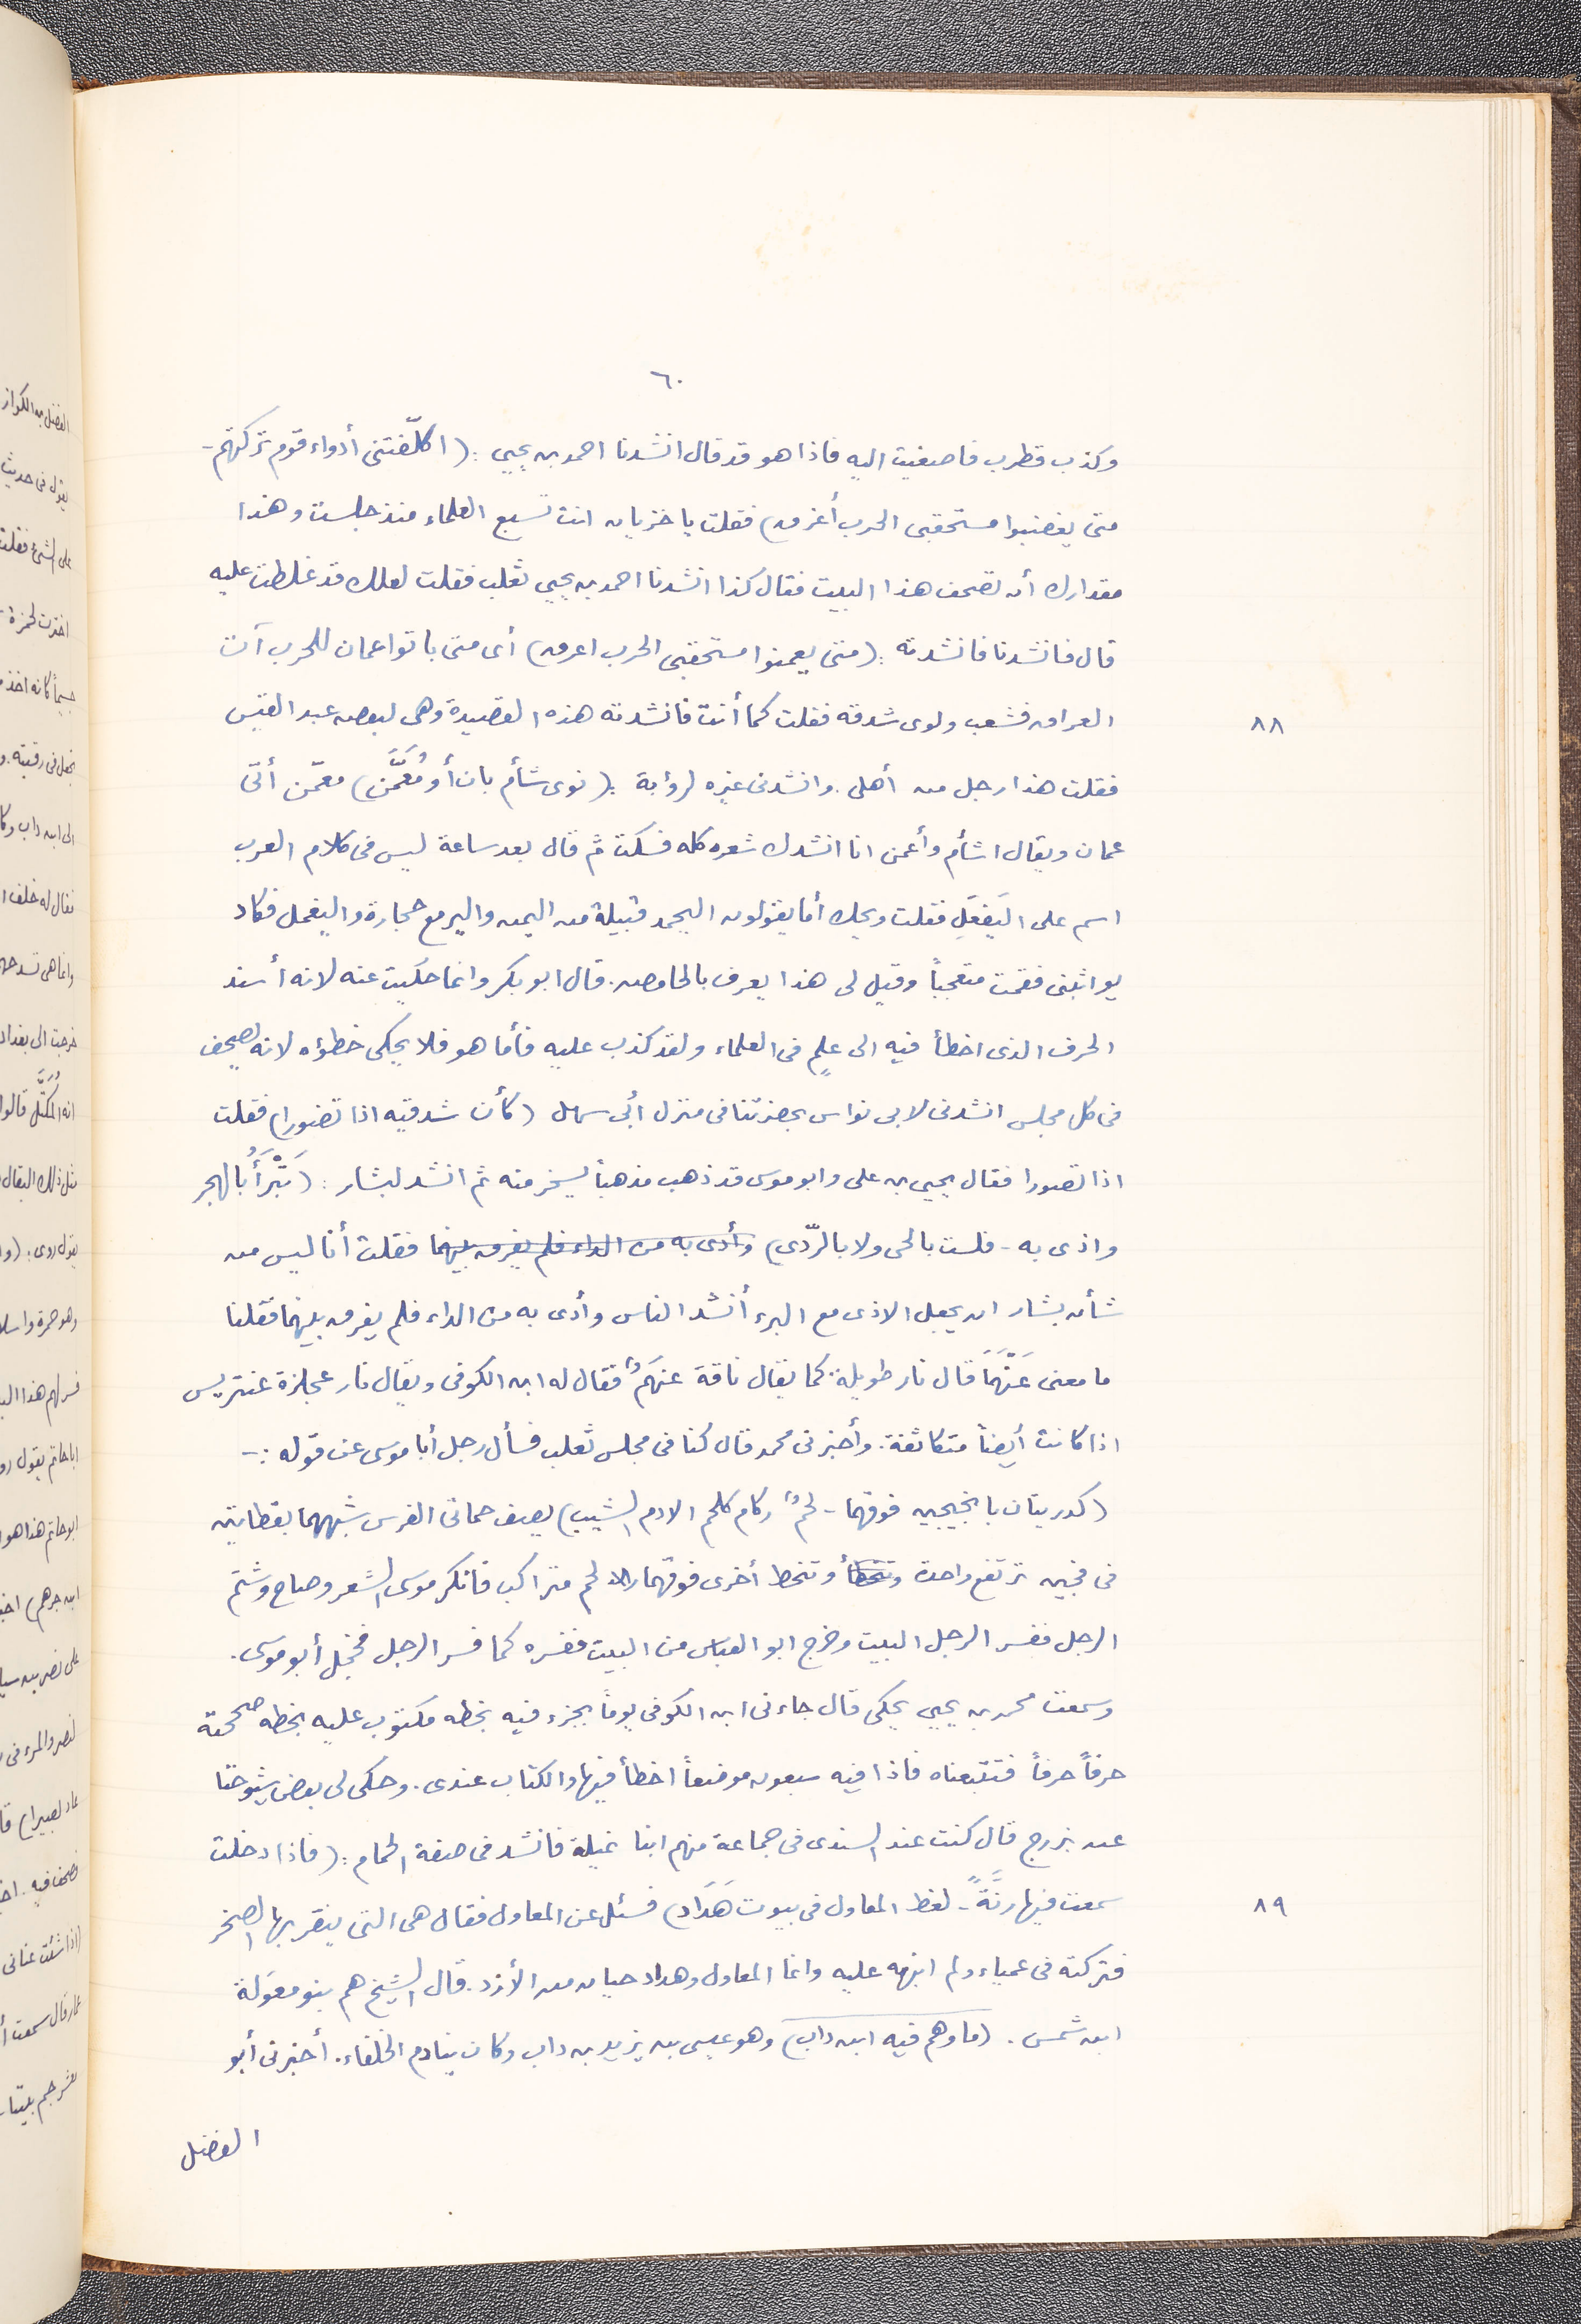 ٦٠
وكذب قطرب فاصغيت اليه فاذا هو قد قال انشدنا احمد بن يحيي : (اكلّفتنى أدواء قوم تركتهم -
متى يغضبوا مستحقبى الحرب أغرق) فقلت يا خزيان انت تسبع العلماء منذ جلست وهذا
مقدارك أن تصحف هذا البيت فقال كذا انشدنا احمد بن يحيي ثعلب فقلت لعلك قد غلطت عليه
قال فانشدنا فانشدته : (متى يعمنوا مستحقبى الحرب اعرق) أى متى ياتوا عمان للحرب آت
العراق فشعب ولوى شدقه فقلت كما أنت فانشدته هذه القصيدة وهى لبعض عبد القيس
٨٨
فقلت هذا رجل من أهلى . وانشدنى غيره لرؤبة : (نوى شأم بان أو مُعَمَّن) معمّن أتى
عمان ويقال اشأم وأعمن انا انشدك شعره كله فسكت ثم قال بعد ساعة ليس فى كلام العرب
اسم على اليَفعَلِ فقلت ويحك أما يقولون اليحمد قبيلة من اليمن واليرمع حجارة واليعمل فكاد
يواثبنى فقمت متعجباً وقيل لى هذا يعرف بالحامض . قال ابو بكر وانما حكيت عنه لانه أسند
الحرف الذى اخطأ فيه الى علم فى العلماء ولقد كذب عليه فأما هو فلا يحكى خطؤه لانه يصحف
فى كل مجلس انشدنى لابى نواس بحضرتنا فى منزل أبى سهل (كأن شدقيه اذا تضورا) فقلت
اذا تصورا فقال يحيى بن على وابو موسى قد ذهب مذهباً ليسخر منه ثم انشد لبشار : (يَبْرَأُ بالهجر
واذى به - فلست بالحى ولا بالرّدي) وأدى به من الداء فلم يفرق بينهما فقلت أنا ليس من
شأن بشار ان يجعل الاذى مع البرء أنشد الناس وأدى به من الداء فلم يفرق بينهما فقلنا
ما معنى عَنْهَمَ قال نار طويلة كما يقال ناقة عنهَمٌ فقال له ابن الكوفى ويقال نار عجلزة عنتريس
اذا كانت أيضاً متكاثفة . وأخبرنى محمد قال كنا فى مجلس ثعلب فسأل رجل أبا موسى عن قوله : -
(كدريتان بانجيجين فوقهما - لحمٌ ركام كلحم الادم الشبب) يصف حماتى الفرس شبههما بقطاتين
فى فجين ترتفع واحدة وتنحط وتنحط أخرى فوقهما لحم متراكب فانكر موسى الشعر وصاح وشتم
الرجل ففسر الرجل البيت وخرج ابو العباس من البيت ففسره كما فسر الرجل فخجل أبو موسى .
وسمعت محمد بن يحيى يحكى قال جاءنى ابن الكوفى يوماً بجزء فيه بخطه مكتوب عليه بخطه صححته
حرفاً حرفاً فتتبعناه فاذا فيه سبعون موضعاً اخطأ فيها والكتاب عندى . وحكى لى بعض شيوخنا
عن بزرج قال كنت عند السندى فى جماعة منهم ابنا غيلة فانشد فى صفة الحمام : (فاذا دخلت
سمعت فيها رنَّةً - لغط المعاول فى بيوت هَدَاد) فسئل عن المعاول فقال هى التى ينقر بها الصخر
٨٩
فتركته فى عمياء ولم انبهه عليه وانما المعاول وهداد حيان من الأزد . قال الشيخ هم بنو معَولة
ابن شمس . (ما وهم فيه ابن داب) وهو عيسى بن يزيد بن داب وكان ينادم الخلفاء . أخبرنى أبو
الفضل